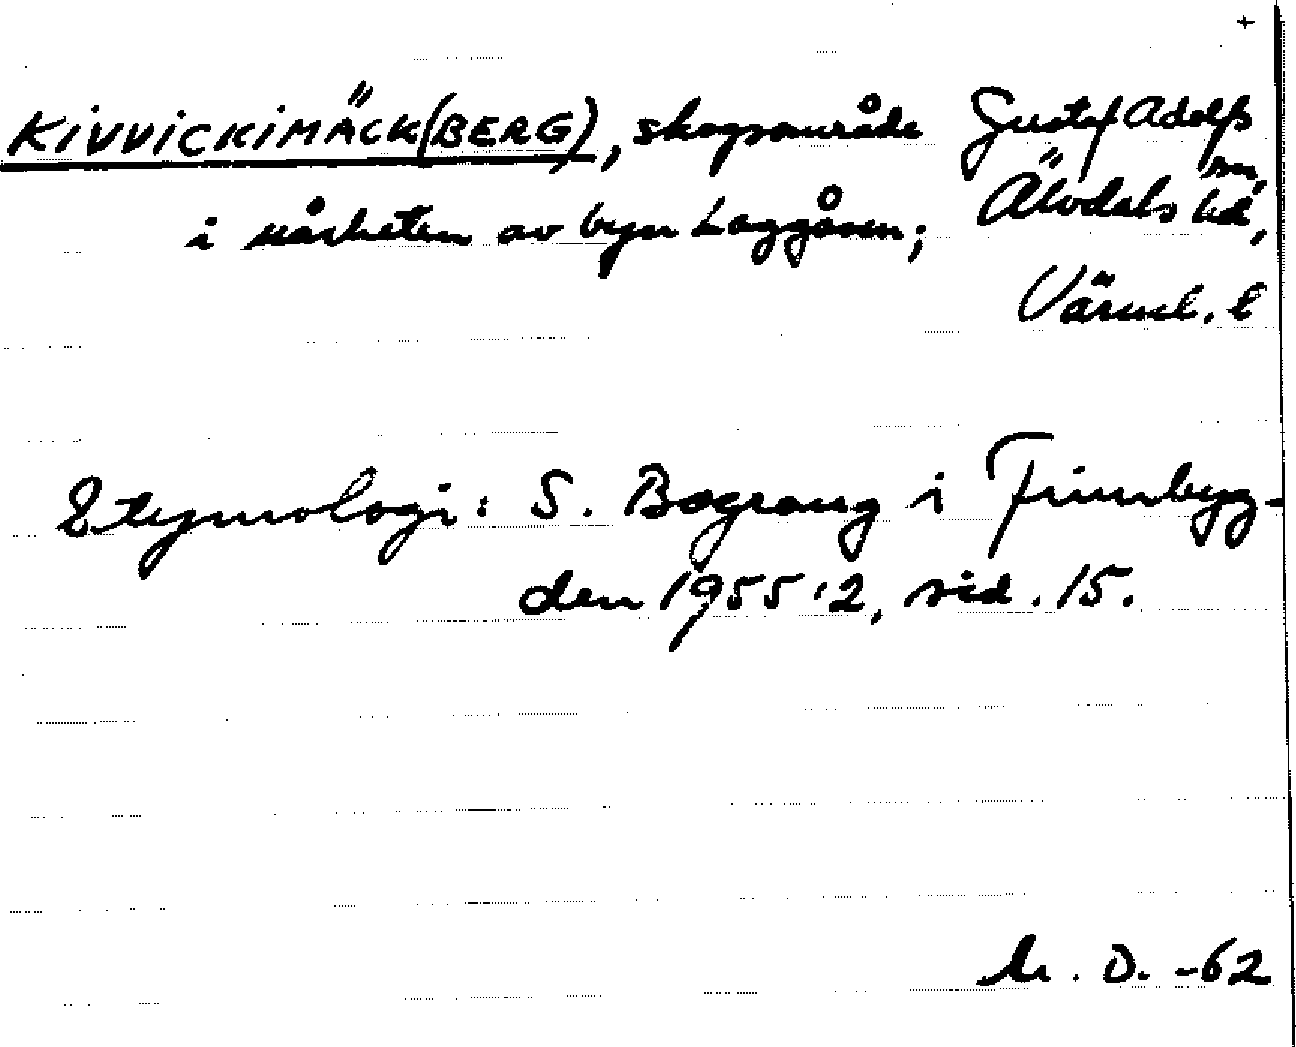 +
KIVVICKIMÄCK(BERG), skogsområde Gustaf Adolfs sn,
i närheten av byn Laggåsen; Älvdals hd,
Värml. l
Etymologi: S. Bograng i Finnbyg-
den 1955:2, sid. 15.
M. D. -62